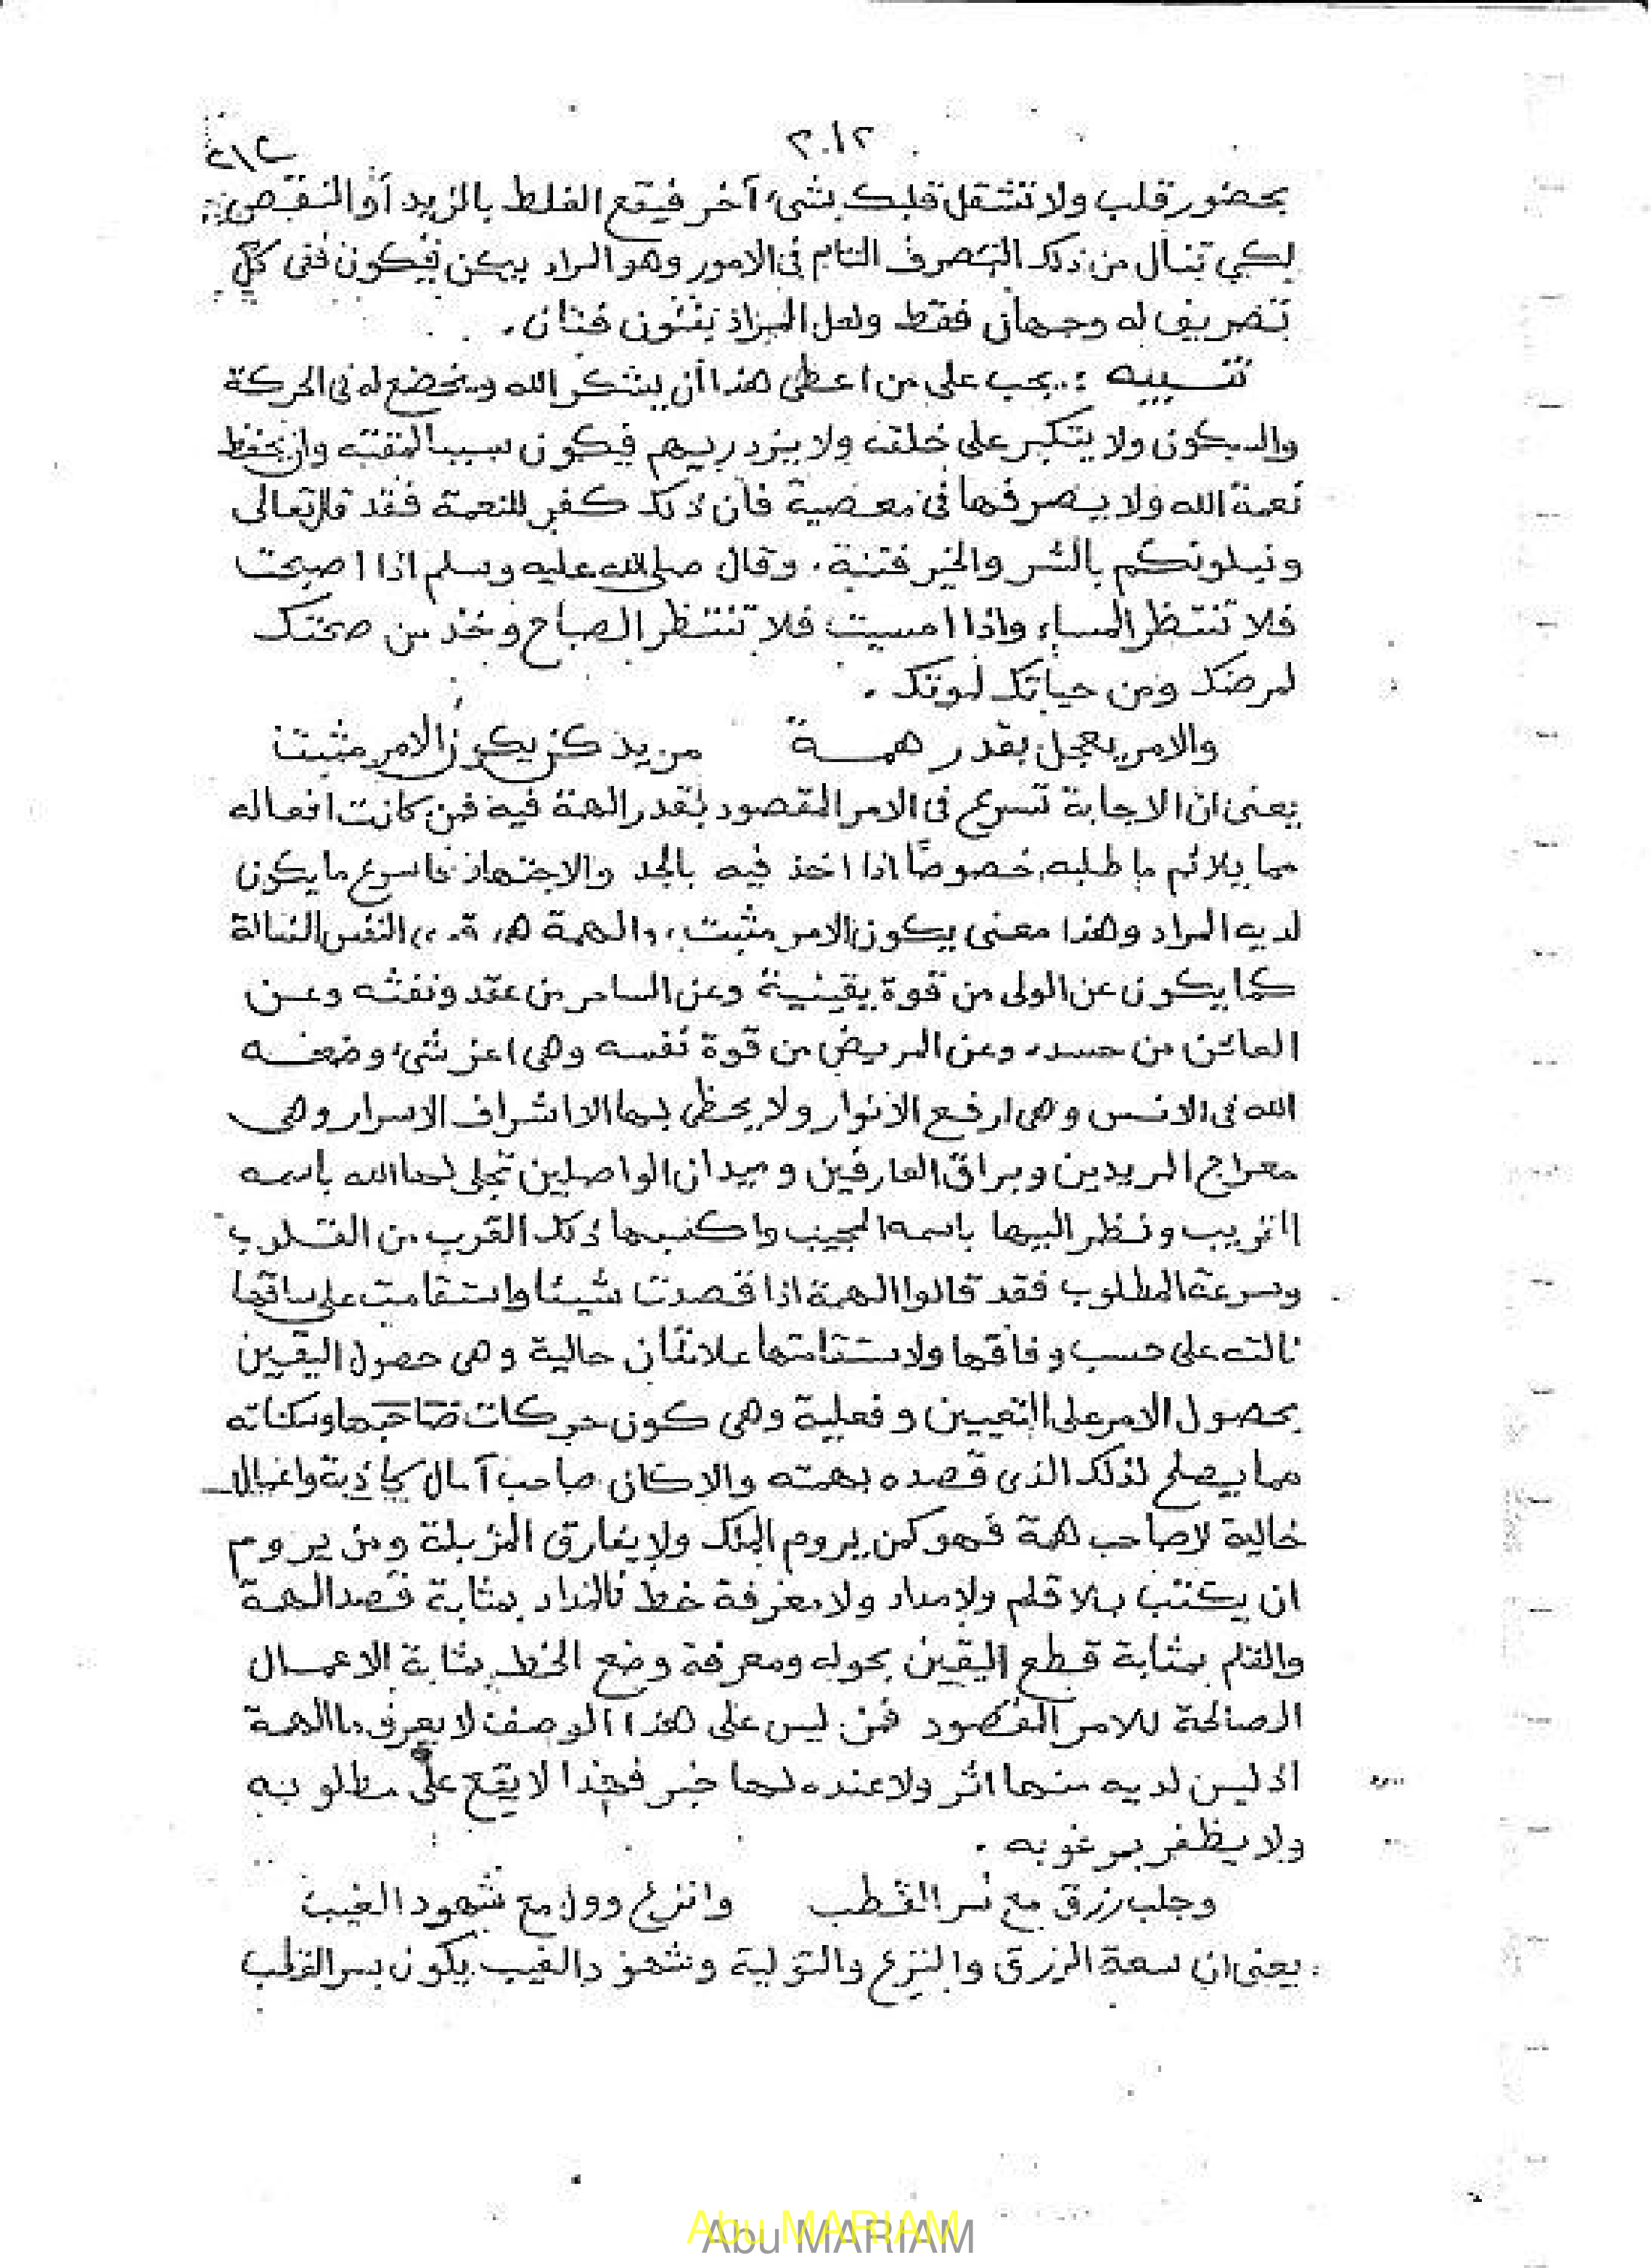 ٢٠١٢
٢١٢
بحضور قلب ولا تشغل قلبك بشىء آخر فيقع الغلط بالمزيد أو النقص
لكي تنال من ذلك التصرف التام فى الامور وهو المراد بكن فيكون ففى كل
تصريف له وجهان فقط ولعل المراد بفنون فنان .
تنبيه : يجب على من اعطى هذا أن يشكر الله ويخضع له فى الحركة
والسكون ولا يتكبر على خلقه ولا يزدريهم فيكون سببا لمقته وان يحفظ
نعمة الله ولا يصرفها فى معصية فان ذلك كفر للنعمة فقد قال تعالى
ونبلونكم بالشر والخير فتنة . وقال صلى الله عليه وسلم اذا اصبحت
فلا تنتظر المساء واذا امسيت فلا تنتظر الصباح وخذ من صحتك
لمرضك ومن حياتك لموتك .
والامر يعجل بقدر همــة من يد كن يكون الامر مثبت
يعنى ان الاجابة تسرع فى الامر المقصود بقدر الهمة فيه فمن كانت افعاله
مما يلائم ما طلبه خصوصًا اذا اخذ فيه بالجد والاجتهاد فاسرع ما يكون
لديه المراد وهذا معنى يكون الامر مثبت ، والهمة النفس
كما يكون عن الولى من قوة يقينية وعن الساحر من عقد ونفثه وعــن
العائن من حسده وعن المريض من قوة نفسه وهى اعز شىء وضعــه
الله فى الانس وهى ارفع الانوار ولا يحظى بها الا اشراف الاسرار وهى
معراج المريدين وبراق العارفين وميدان الواصلين تجلى لها الله باسمه
القريب ونظر اليها باسمه المجيب واكسبها ذلك القرب من القلوب
وسرعة المطلوب فقد قالوا الهمة اذا قصدت شيئا واستقامت على ساقها
نالته على حسب وفاقها ولاستقامتها علامتان حالية وهى حصول اليقين
بحصول الامر على التعيين وفعلية وهى كون حركات صاحبها وسكناته
مما يصلح لذلك الذى قصده بهمته والا كان صاحب آمال كاذبة
خالية لا صاحب همة فهو كمن يروم الملك ولا يفارق المزبلة ومن يروم
ان يكتب بلا قلم ولا مداد ولا معرفة خط فالمداد بمثابة قصد الهمة
والقلم بمثابة قطع اليقين بحوله ومعرفة وضع الخط بمثابة الاعمــال
الصالحة للامر المقصود فمن ليس على هذا الوصف لا يعرف ما الهمة
اذ ليس لديه منها اثر ولا عنده لها خبر فهذا لا يقع على مطلوبه
ولا يظفر بمرغوبه .
وجلب رزق مع سر القطب وانزع وول مع شهود الغيب
يعنى ان سعة الرزق والنزع والتولية وشهود الغيب يكون بسر القطب
Abu MARIAM
Abu MARIAM